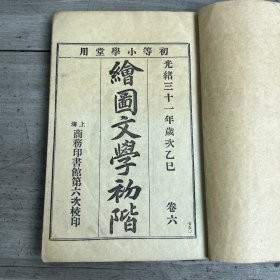 初等小學堂用
光緒三十一年歲次乙巳
卷六
繪圖文學初階
上海商務印書館第六次校印